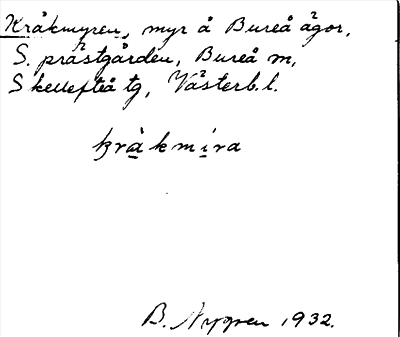 Kråkmyren, myr å Bureå ägor,
S. prästgården, Bureå m,
Skellefteå tg, Västerb. l.
kràkmira
B. Nygren 1932.